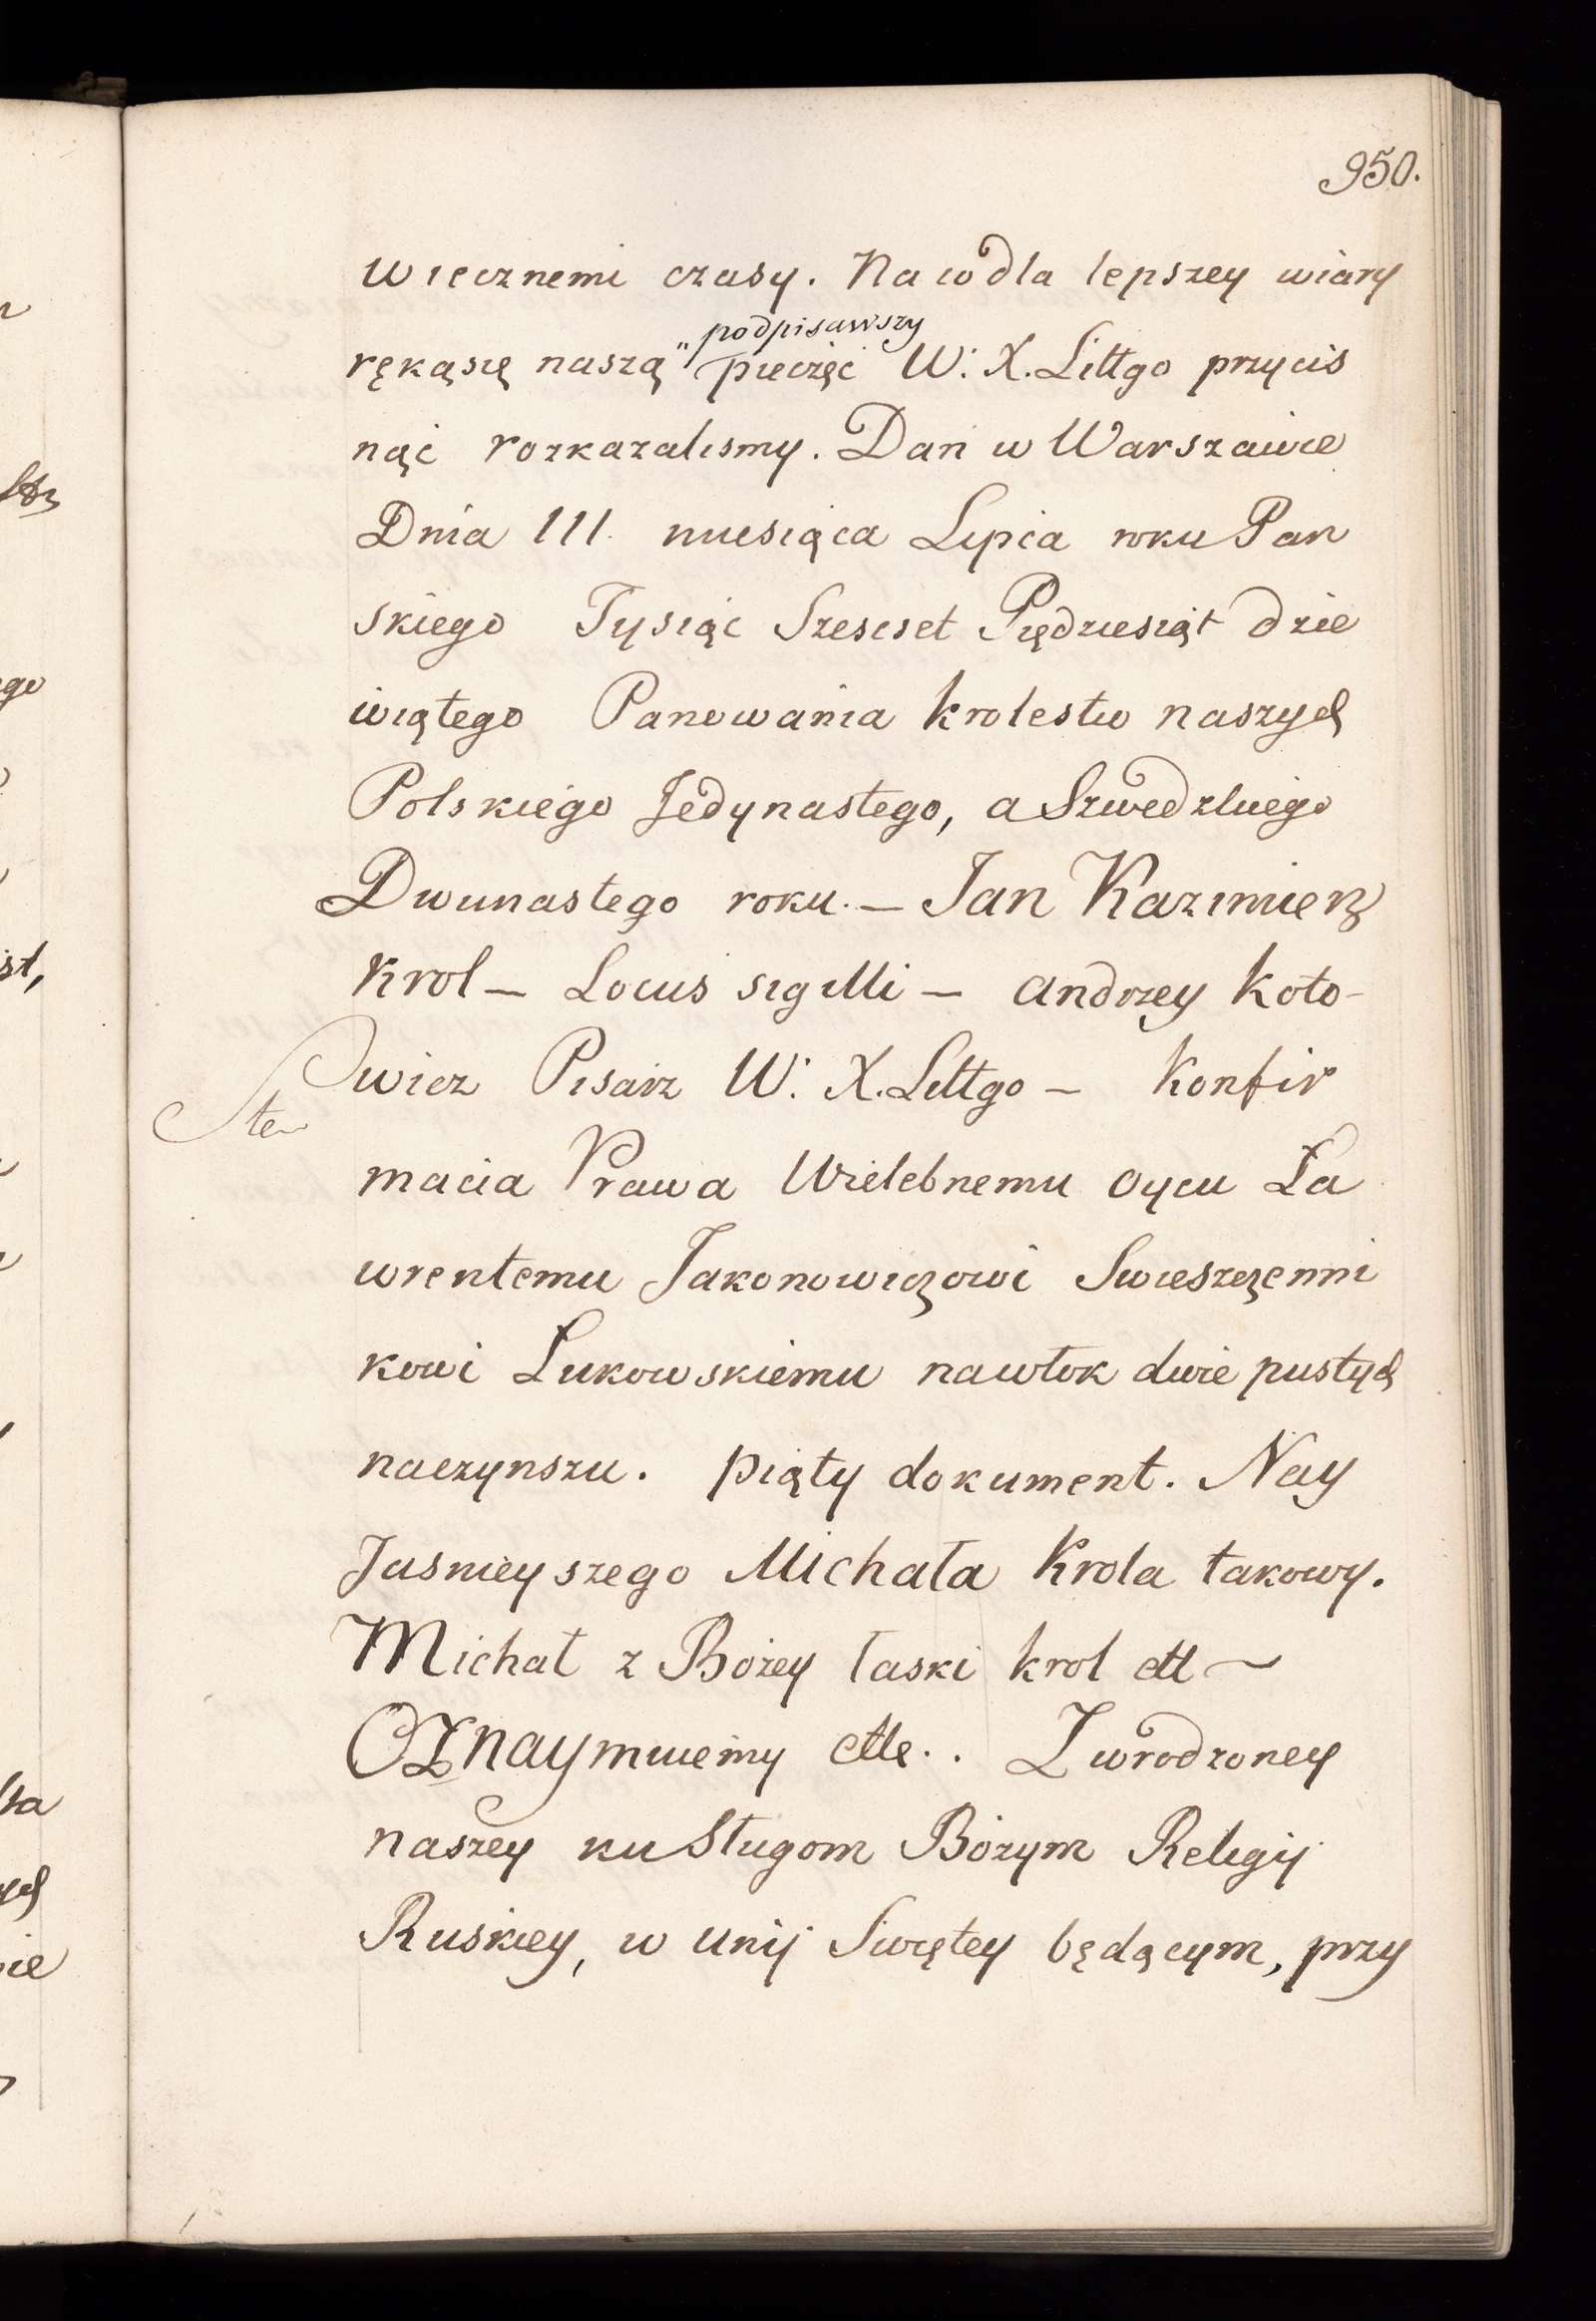 950.
wiecznemi czasy. Na co dla lepszey wiary
podpisawszy
ręką się naszą " pieczęć W. X. Littgo przycis
nąć rozkazalismy. Dan w Warszawie
Dnia 111. miesiąca Lipca roku Pan
skiego Tysiąc Szescset Piędziesiąt dzie
wiątego Panowania krolestw naszych
Polskiego Jedynastego, a Szwedzkiego
Dwunastego roku. — Jan Kazimierz
Krol — Locus sigilli — Andrzey Koto-
wicz Pisarz W. X. Littgo — Konfir
macia Prawa Wielebnemu oycu Ła
wrentemu Jakonowiczowi Swieszczenni
kowi Łukowskiemu na włok dwie pustych
na czynszu. piąty dokument. Nay
Jasnieyszego Michała Krola takowy.
Michał z Bożey łaski krol ett ~
Oznaymuiemy ette. . Z wrodzoney
naszey ku Sługom Bożym Religij
Ruskiey, w unij Swiętey będącym, przy